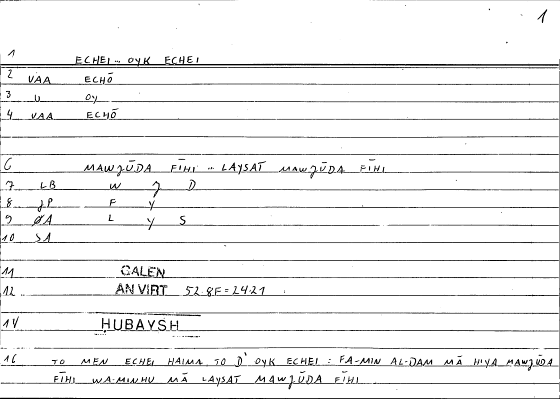 1
1 ECHEI … OYK ECHEI
2 VAA ECHŌ
3 U OY
4 VAA ECHŌ
6 MAWǦŪDA FĪHI … LAYSAT MAWǦŪDA FĪHI
7 LB W Ǧ D
8 JP F Y
9 ØA L Y S
10 SA
11 GALEN
12 AN VIRT 52.8F=24.21
14 HUBAYSH
16 TO MEN ECHEI HAIMA TO D' OYK ECHEI : FA-MIN AL-DAM MĀ HIYA MAWǦŪDA
FĪHI WA-MINHU MĀ LAYSAT MAWǦŪDA FĪHI